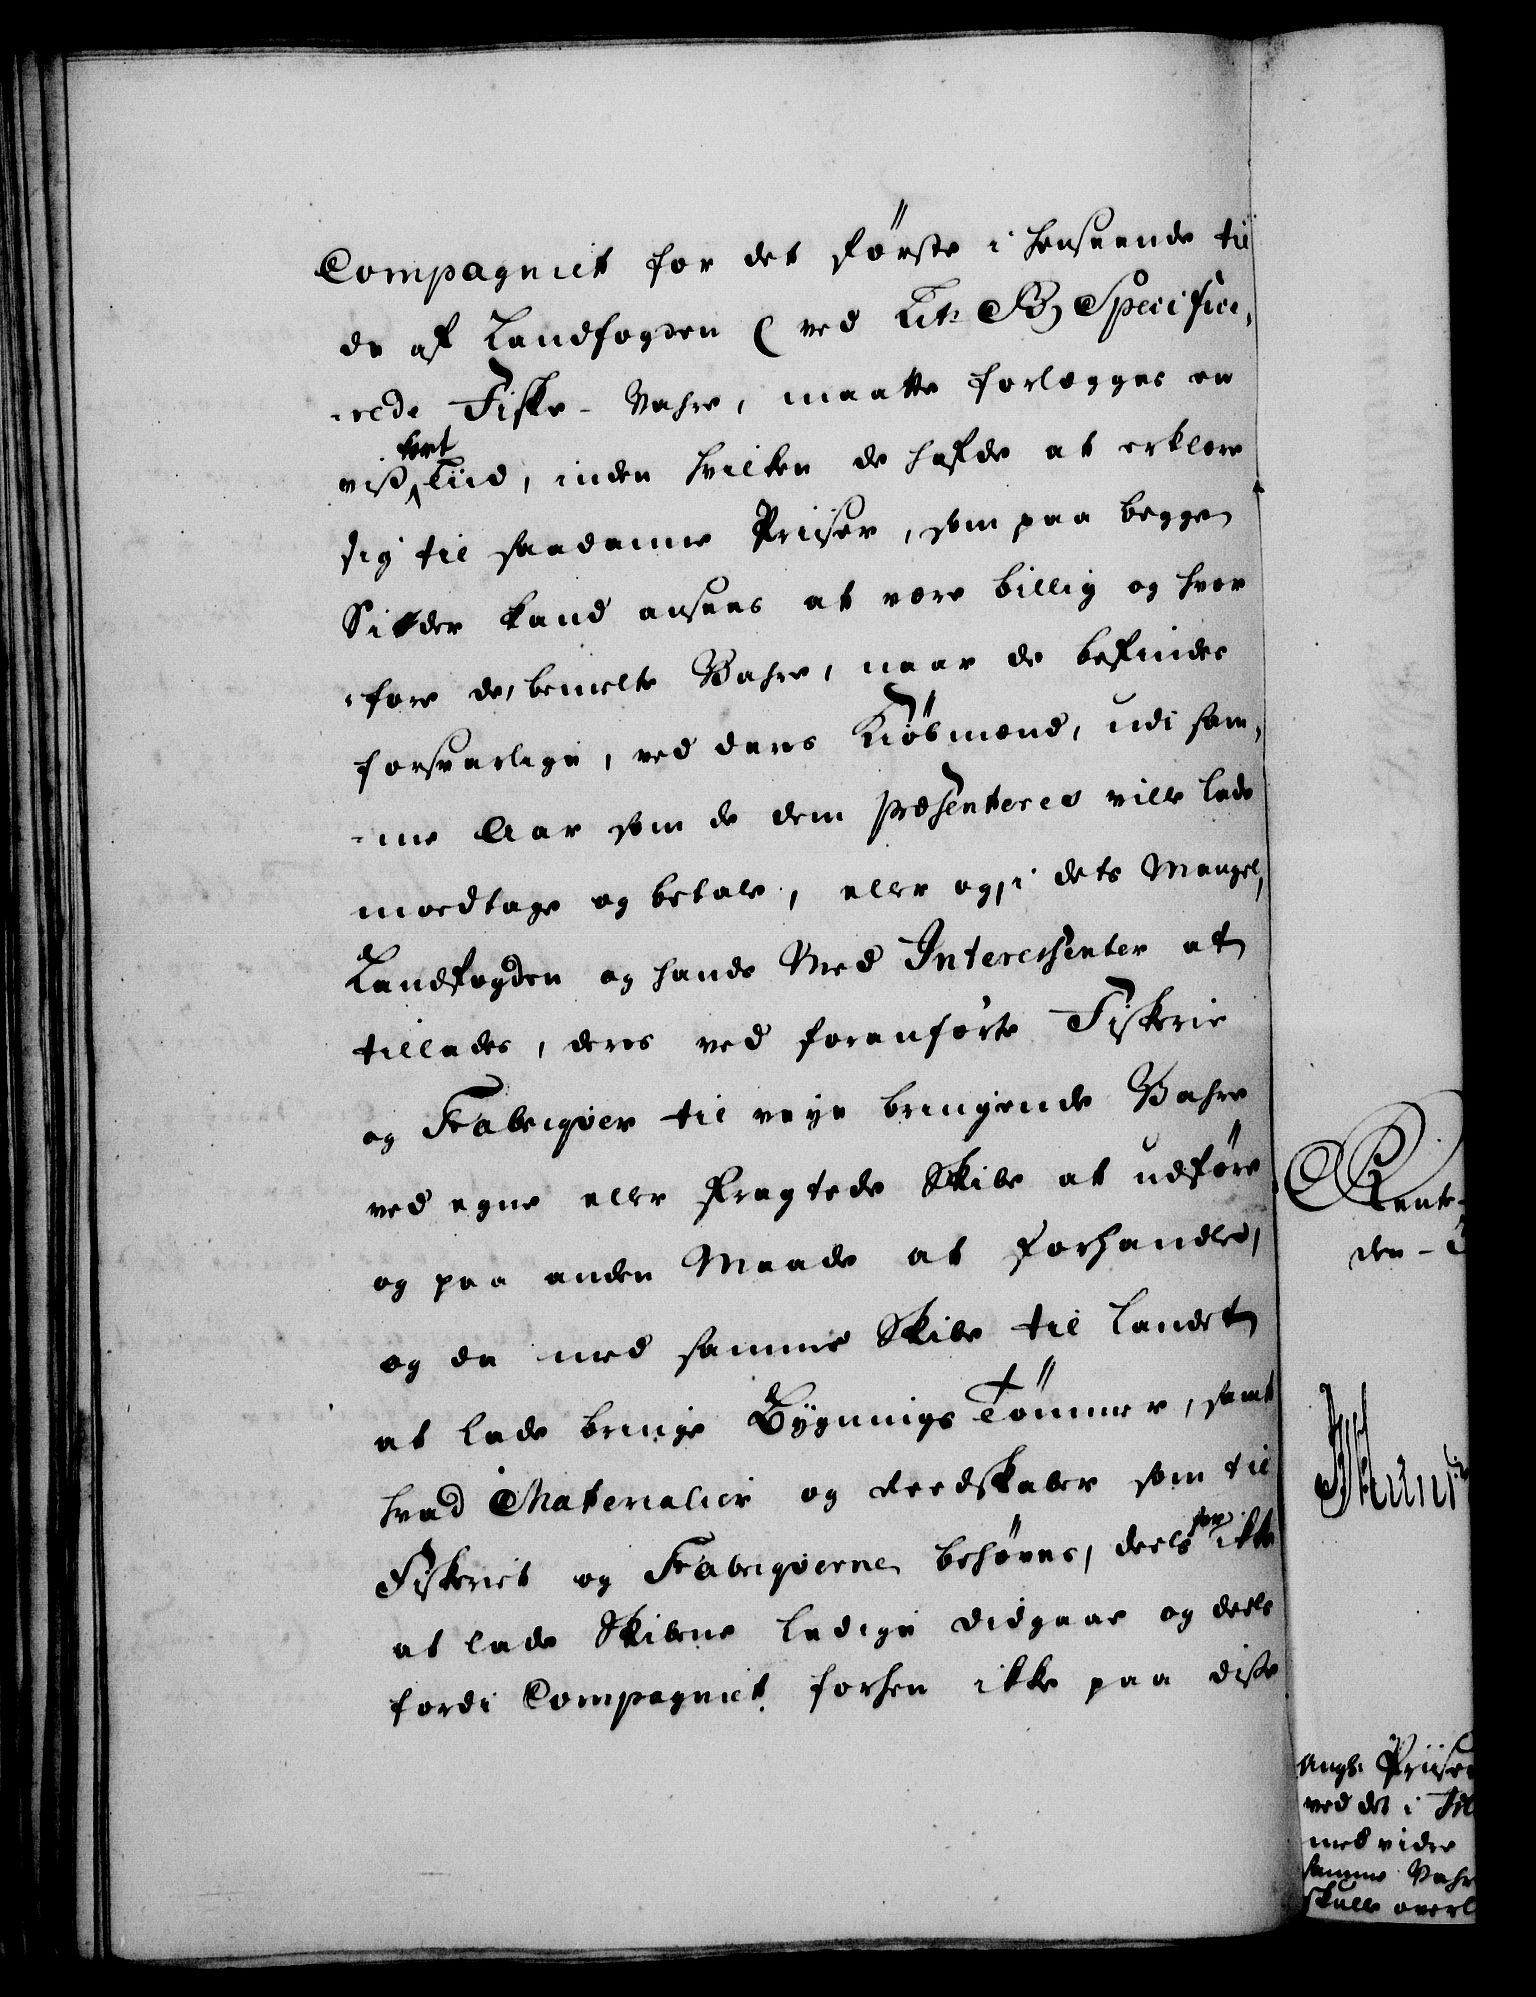 Compagniet for det første i henseende til
de af Landfogden (ved Lit: B) Specifice-
-rede Fiske-Vahre, maatte forlegges en
viß kort Tiid, inden hvilken de hafde at erklere
sig til saadanne Priiser, som paa begge
Sider kand ansees at vere billig og hvor
-fore de, bemelte Vahre, naar de befindes
forsvarlige, ved deres Kiøbmænd, udi sam-
-me Aar som de dem præsenteres ville lade
modtage og betale, eller og, i dets Mangel,
Landfogden og hands Med Interessenter at
tillades, deres ved foranførte Fiskerie
og Fabriqver til veye bringende Vahre
ved egne eller fragtede Skibe at udføre
og paa anden Maade at forhandle,
og da med samme Skibe til Landet
at lade bringe Bygnings Tømmer, samt
hvad Materialier og Redskaber som til
Fiskeriet og Fabriqverne behøves, deels for ikke
at lade Skibene ledige didgaae og deels
fordi Compagniet forhen ikke paa diße
Rente-
den -
Priiser
ved det i
med vidre
samme Vahr
skulle overl